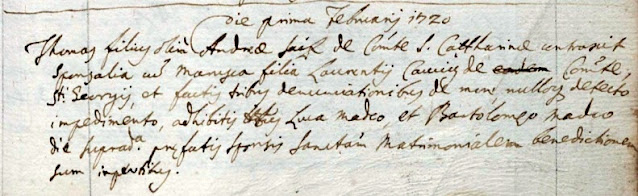 Die prima Februarij 1720
Thomas filius olim Andreæ de Com̃te S. Cattharinæ contraxit
Sponsalia cũ Marusa filia Laurentij de eadem Com̃te,
Sti Georgij, et factis tribus denunciationibus de more nulloq detecto
impedimento, adhibitis Luca madco, et Bartolomeo madco
die suprada præfatis sponsis Sanctam Matrimonialem benedictionem
sum